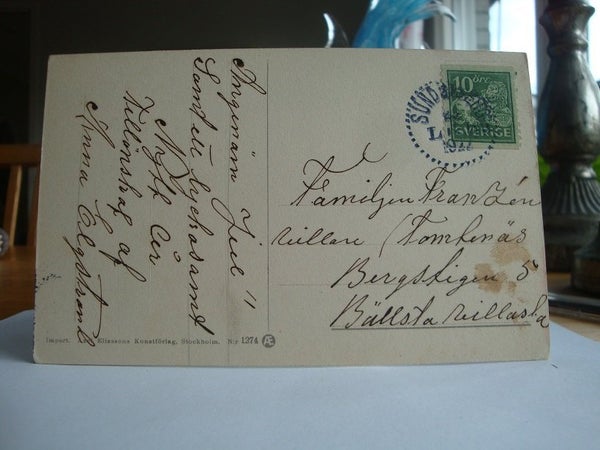 Angenäm Jul !!
Samt ett lyckosamt
Nytt År
Tillönskas af
Anna
10 ÖRE
SVERIGE
SUND
Familjen Franzén
Villan Tomtenäs
Bergstigen 5
Bällsta Villasta
Import. Eliassons Konstförlag, Stockholm. N:r 1274